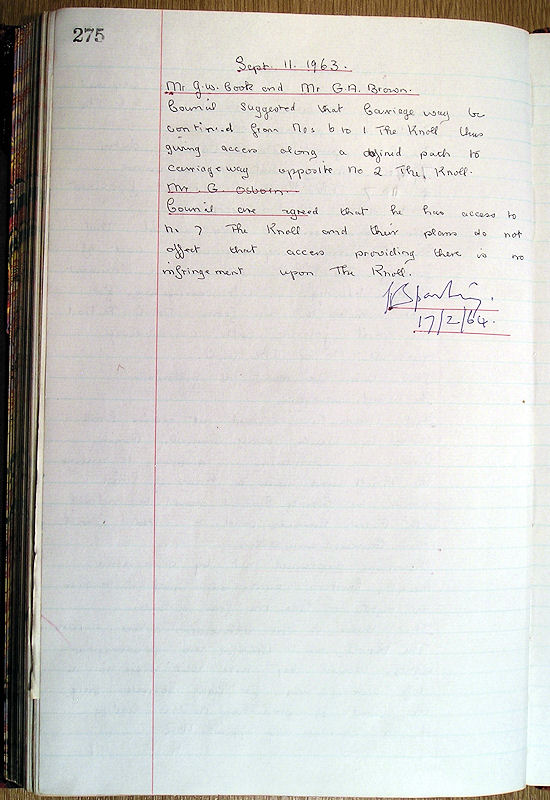 275
Sept. 11. 1963.
Mr G.W. Book and Mr G.A. Brown.
Council suggested that Carriage way be
continued from Nos 6 to 1 The Knoll thus
giving access along a defined path to
carriageway opposite No 2 The Knoll.
Mr. G. Osborn.
Council are agreed that he has access to
No. 7 The Knoll and their plans do not
affect that access providing there is no
infringement upon The Knoll.
17/2/64.